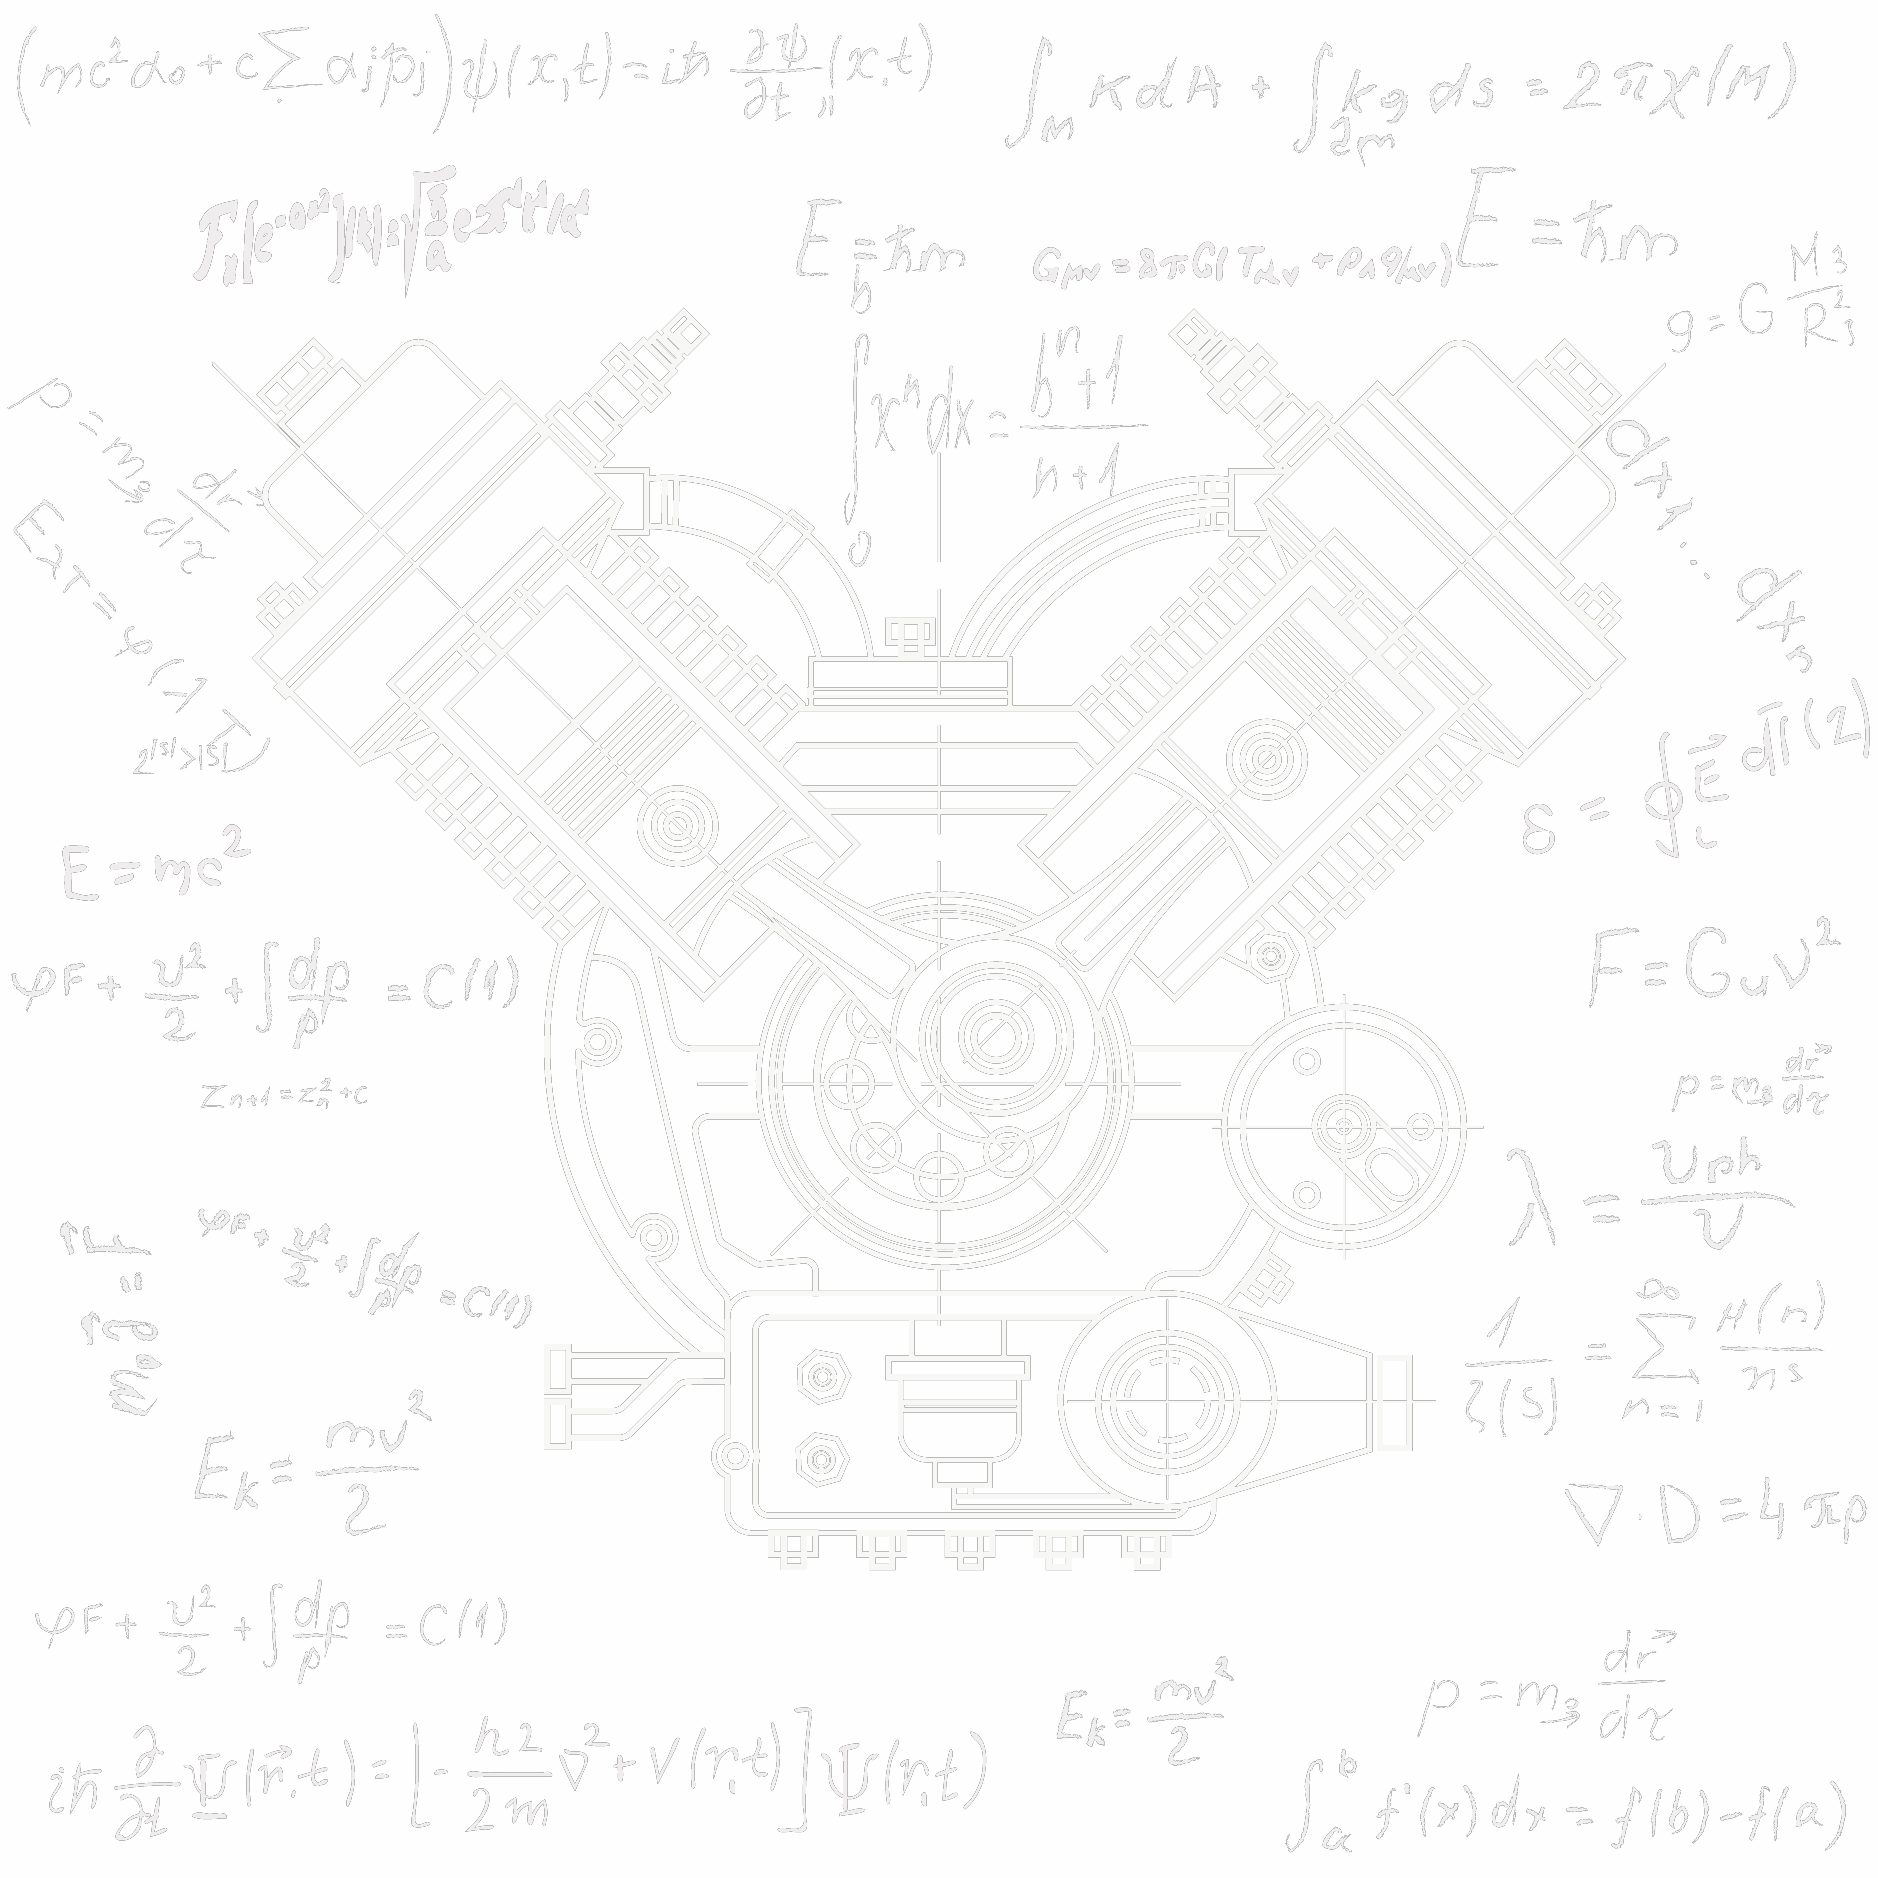 (mc²α₀ + c∑αjp̂j)ψ(x,t) = iħ ∂ψ/∂t (x,t)
∫_M KdA + ∫_∂M kg ds = 2πχ(M)
E = ħm
Gμν = 8πG(Tμν + ρΛgμν)
E = ħm
g = G M₃/R²₃
∫₀ᵇ xⁿdx = bⁿ⁺¹/n+1
p = m₃ dr⃗/dτ
dx₁ ... dxn
2^|S| > |S|
δ = ∮ E⃗ dl⃗ (2)
E = mc²
F = Guv²
φF + v²/2 + ∫dp/p = C(1)
p = m₃ dr⃗/dτ
Zn+1 = Z²n + C
λ = vph/v
φF + v²/2 + ∫dp/p = C(1)
1/ζ(S) = ∑n=1^∞ μ(n)/nˢ
Ek = mv²/2
∇·D = 4πρ
φF + v²/2 + ∫dp/p = C(1)
Ek = mv²/2
p = m₃ dr⃗/dτ
iħ ∂/∂t Ψ(r⃗,t) = [-ħ2/2m ∇² + V(r,t)] Ψ(r,t)
∫ₐᵇ f'(x)dx = f(b) - f(a)